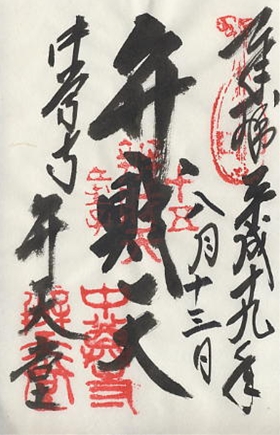 奉拝 平成十九年
八月十三日
弁財天
中尊寺 弁天堂
中尊寺